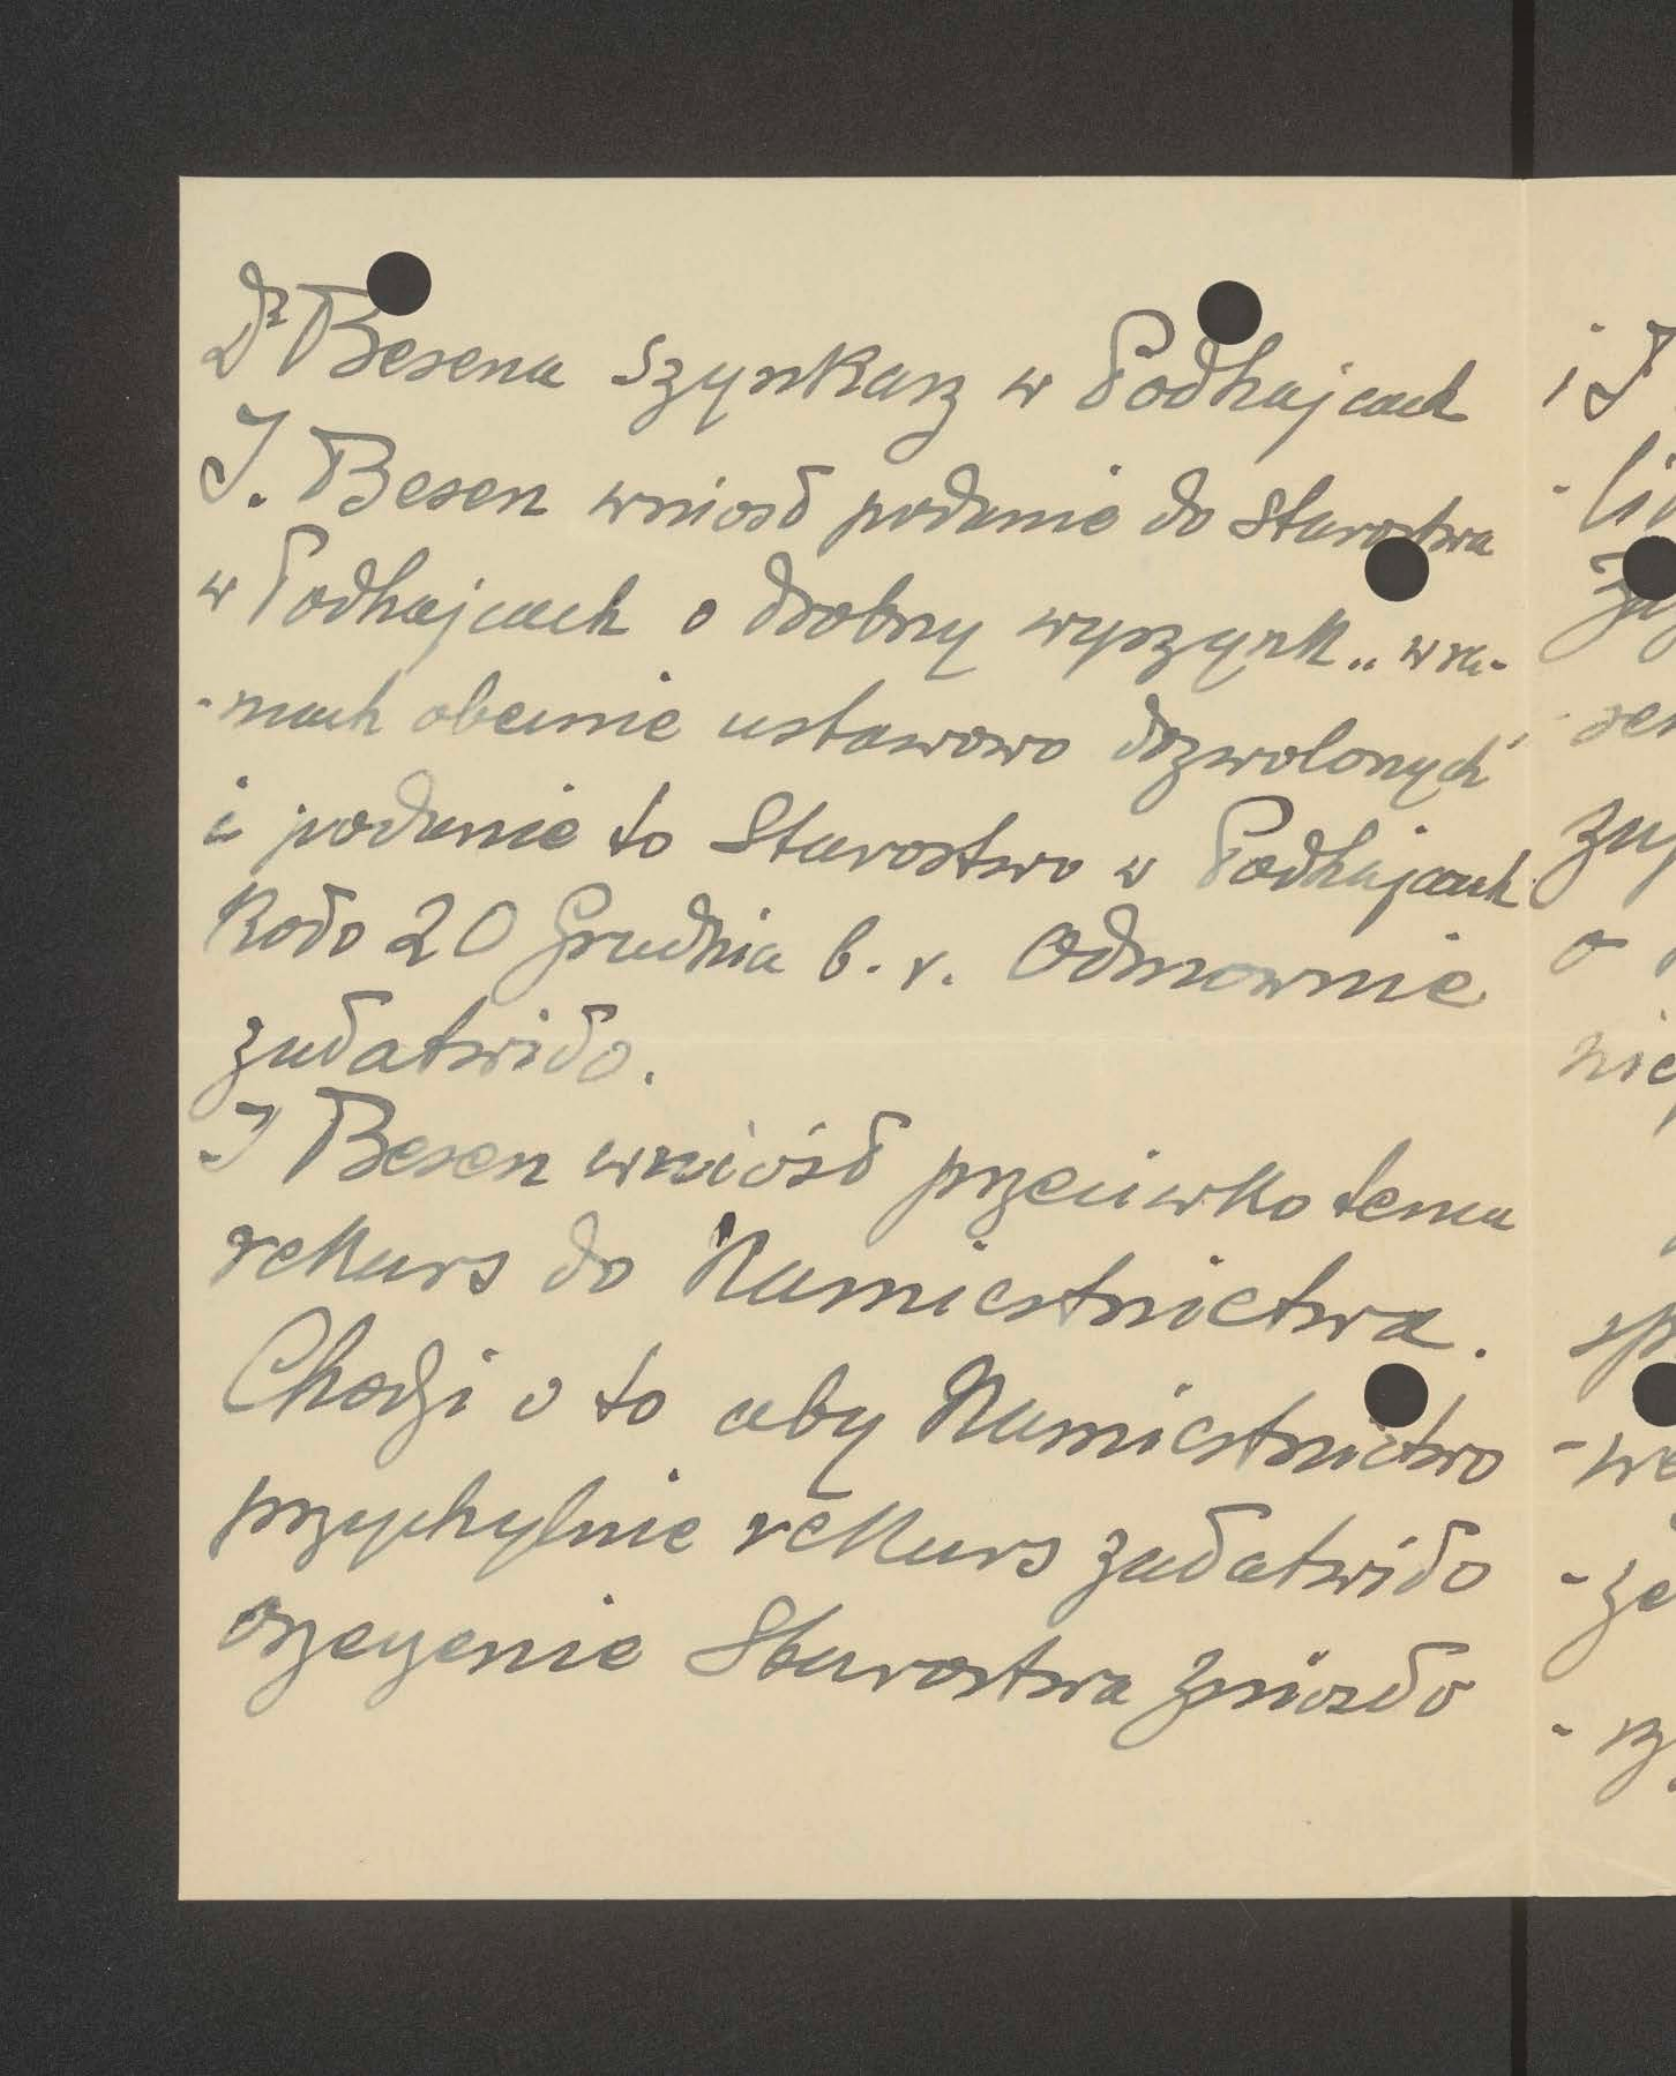 Dr Besena Szynkarz w Podhajcach
J. Besen wniosł podanie do Starostwa
w Podhajcach o drobny wyszynk „w ra-
-mach obecnie ustawowo dozwolonych"
i podanie to Starostwo w Podhajcach
Koło 20 Grudnia b. r. Odmownie
załatwiło.
J Besen wniósł przeciwko temu
rekurs do Namiestnictwa.
Chodzi o to aby Namiestnictwo
przychylnie rekurs załatwiło
orzeczenie Starostwa zniosło